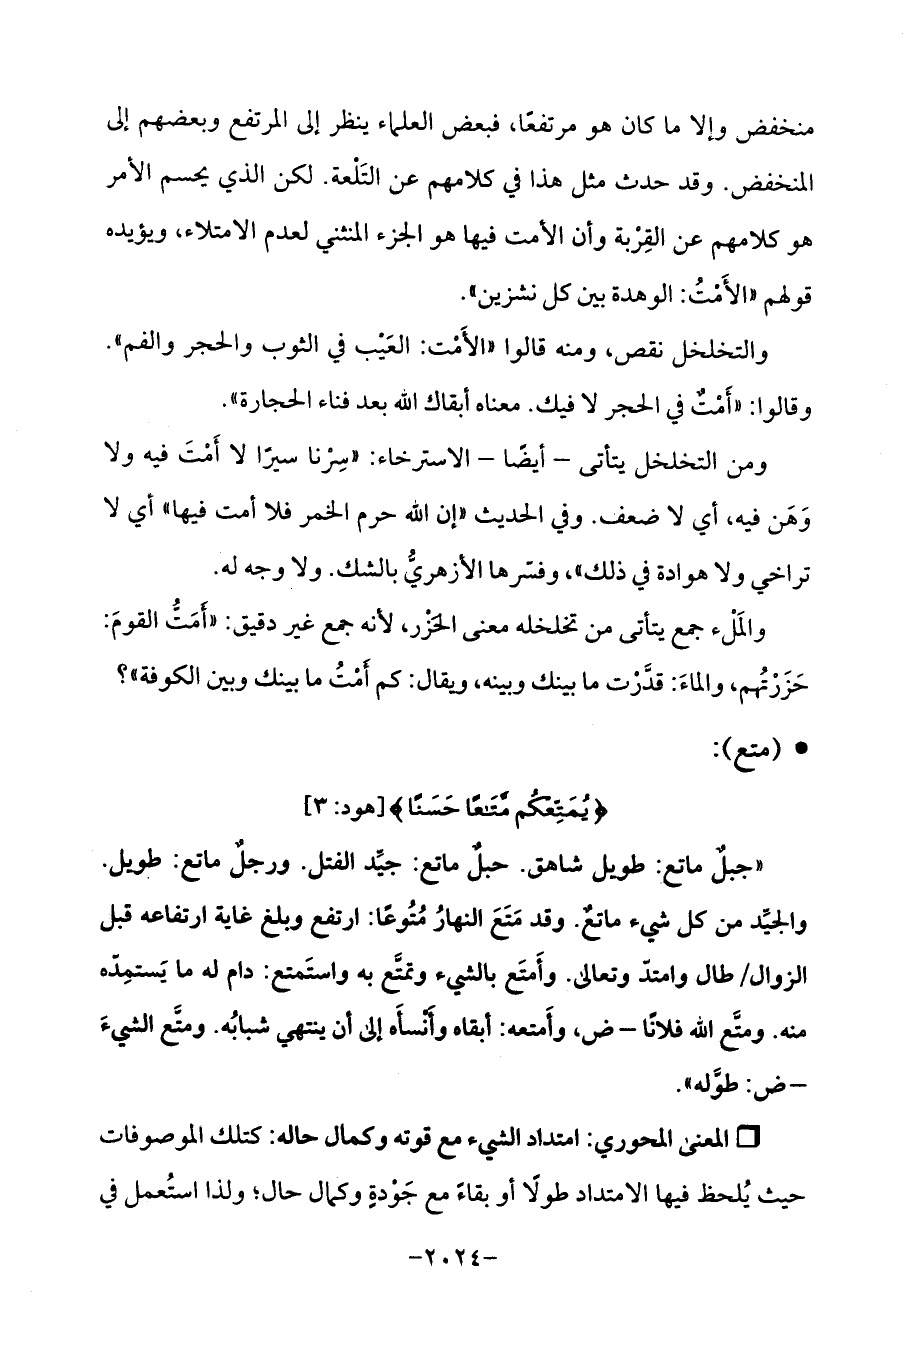 منخفض وإلا ما كان هو مرتفعًا، فبعض العلماء ينظر إلى المرتفع وبعضهم إلى
المنخفض. وقد حدث مثل هذا في كلامهم عن التَلْعة. لكن الذي يحسم الأمر
هو كلامهم عن القِرْبة وأن الأمت فيها هو الجزء المنثني لعدم الامتلاء، ويؤيده
قولهم «الأَمْتُ: الوهدة بين كل نشزين».
والتخلخل نقص، ومنه قالوا «الأَمْت: العَيْب في الثوب والحجر والفم».
وقالوا: «أَمْتٌ في الحجر لا فيك. معناه أبقاك الله بعد فناء الحجارة».
ومن التخلخل يتأتى – أيضًا – الاسترخاء: «سِرْنا سيرًا لا أَمْتَ فيه ولا
وَهَن فيه، أي لا ضعف. وفي الحديث «إن الله حرم الخمر فلا أمت فيها» أي لا
تراخي ولا هوادة في ذلك»، وفسّرها الأزهريُّ بالشك. ولا وجه له.
والمَلْء جمع يتأتى من تخلخله معنى الحَزْر، لأنه جمع غير دقيق: «أَمَتُّ القومَ:
حَزَرْتُهم، والماءَ: قدَّرْت ما بينك وبينه، ويقال: كم أَمْتُ ما بينك وبين الكوفة»؟
• (متع):
﴿يُمَتِّعْكُم مَّتَٰعًا حَسَنًا﴾ [هود: ٣]
«جبلٌ ماتع: طويل شاهق. حبلٌ ماتع: جيِّد الفتل. ورجلٌ ماتع: طويل.
والجيِّد من كل شيء ماتعٌ. وقد مَتَعَ النهارُ مُتُوعًا: ارتفع وبلغ غاية ارتفاعه قبل
الزوال/ طال وامتدّ وتعالى. وأَمتَع بالشيء وتمتَّع به واستَمتع: دام له ما يَستمِدّه
منه. ومتَّع الله فلانًا – ض، وأَمتعه: أبقاه وأَنْسأَه إلى أن ينتهي شبابُه. ومتَّع الشيءَ
– ض: طوَّله».
❒ المعنى المحوري: امتداد الشيء مع قوته وكمال حاله: كتلك الموصوفات
حيث يُلحظ فيها الامتداد طولًا أو بقاءً مع جَوْدةٍ وكمال حال؛ ولذا استُعمل في
-٢٠٢٤-